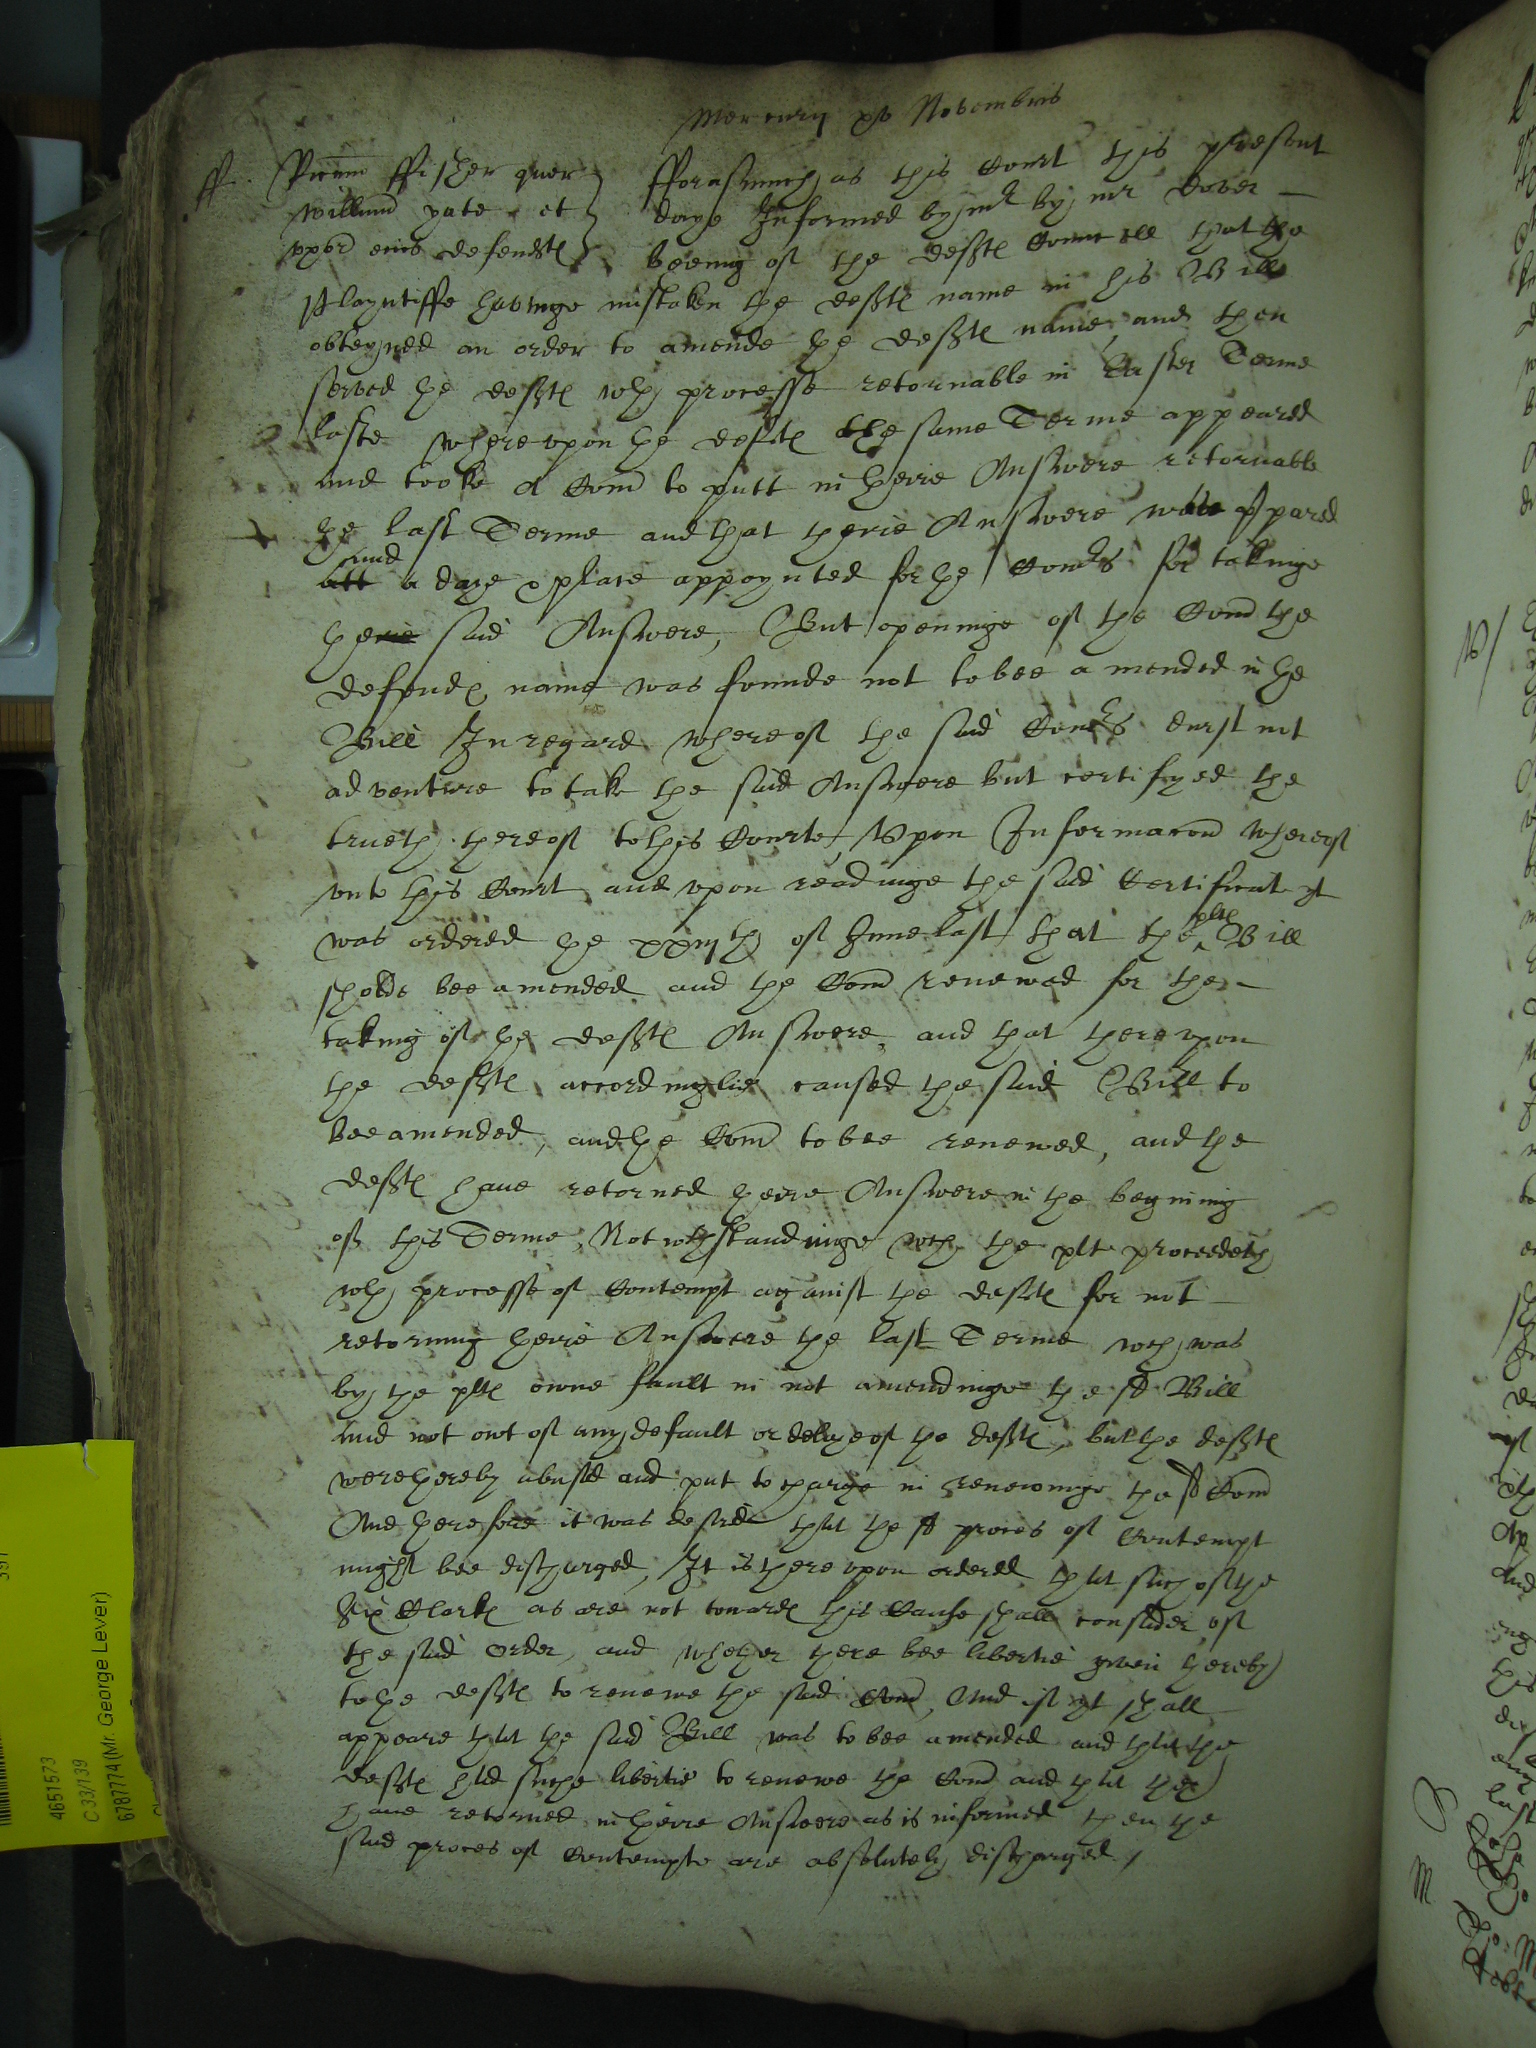 Mercurij xv Novembris
ff. ffisher quer fforasmuch as this Court this present
Willimu yate et daye Informed by mr by mr Dover
vxor eius defendtes beeing of the deftes Councell that the
Playntiffe havinge mistaken the deftes name in his Bill
obteyned an order to amende the deftes name and then
served the deftes wth processe retornable in Easter Terme
laste wherevpon the deftes the same Terme appeared
and tooke a Com to putt in theire Answere retornable
the last Terme and that theire Answere was ppared
and
att a daye & place appoynted for the Comrs for takinge
the said Answere, But openinge of the Com the
defendtes name was founde not to bee amended in the
Bill In regard whereof the said Comrs durst not
adventure to take the said Answere but certifyed the
trueth thereof to this Courte Vpon Informacon whereof
vnto this Court and vpon readinge the said Certificate yt
was ordered the xxiijth of June last that the pltes Bill
sholde bee amended and the Com renewed for the
taking of the deftes Answere, and that therevpon
the deftes accordinglie caused the said Bill to
bee amended, and the Com to bee renewed, and the
deftes have retorned theire Answere in the begining
of this Terme, Notwthstandinge wch the plt proceedeth
wth processe of Contempt against the deftes for not
retorning theire Answere the last Terme wch was
by the pltes owne fault in not amendinge the sd Bill
and not owt of any default or delaye of the deftes, but the deftes
were thereby abused and put to charge in renewinge the sd Com
And therefore it was desired that the sd proces of Contempt
might bee discharged, It is therevpon ordered that such of the
Six Clarkes as are not towardes this Cause shall consider of
the said Order, and whether there bee libertie given thereby
to the deftes to renewe the said Com, And if yt shall
appeare that the said Bill was to bee amended and that the
deftes had suche libertie to renewe the Com and that they
have retorned in theire Answere as is informed then the
said proces of Contempte are absolutely discharged
4651573
C 33/139
6787774 (Mr. George Lever)